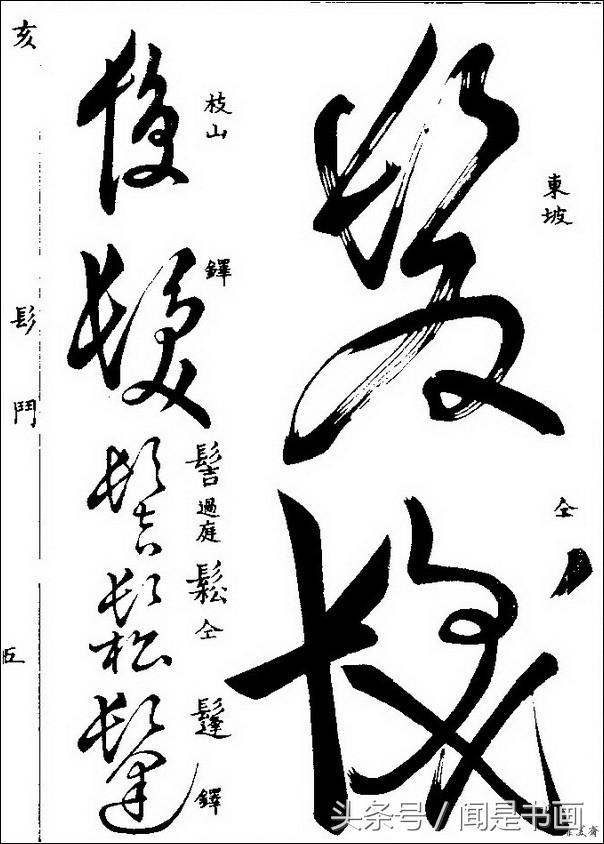 髮
東坡
髮
仝
髮
枝山
髮
鐸
髻 過庭
鬆 仝
鬔 鐸
亥
髟
鬥
头条号 / 闻是书画